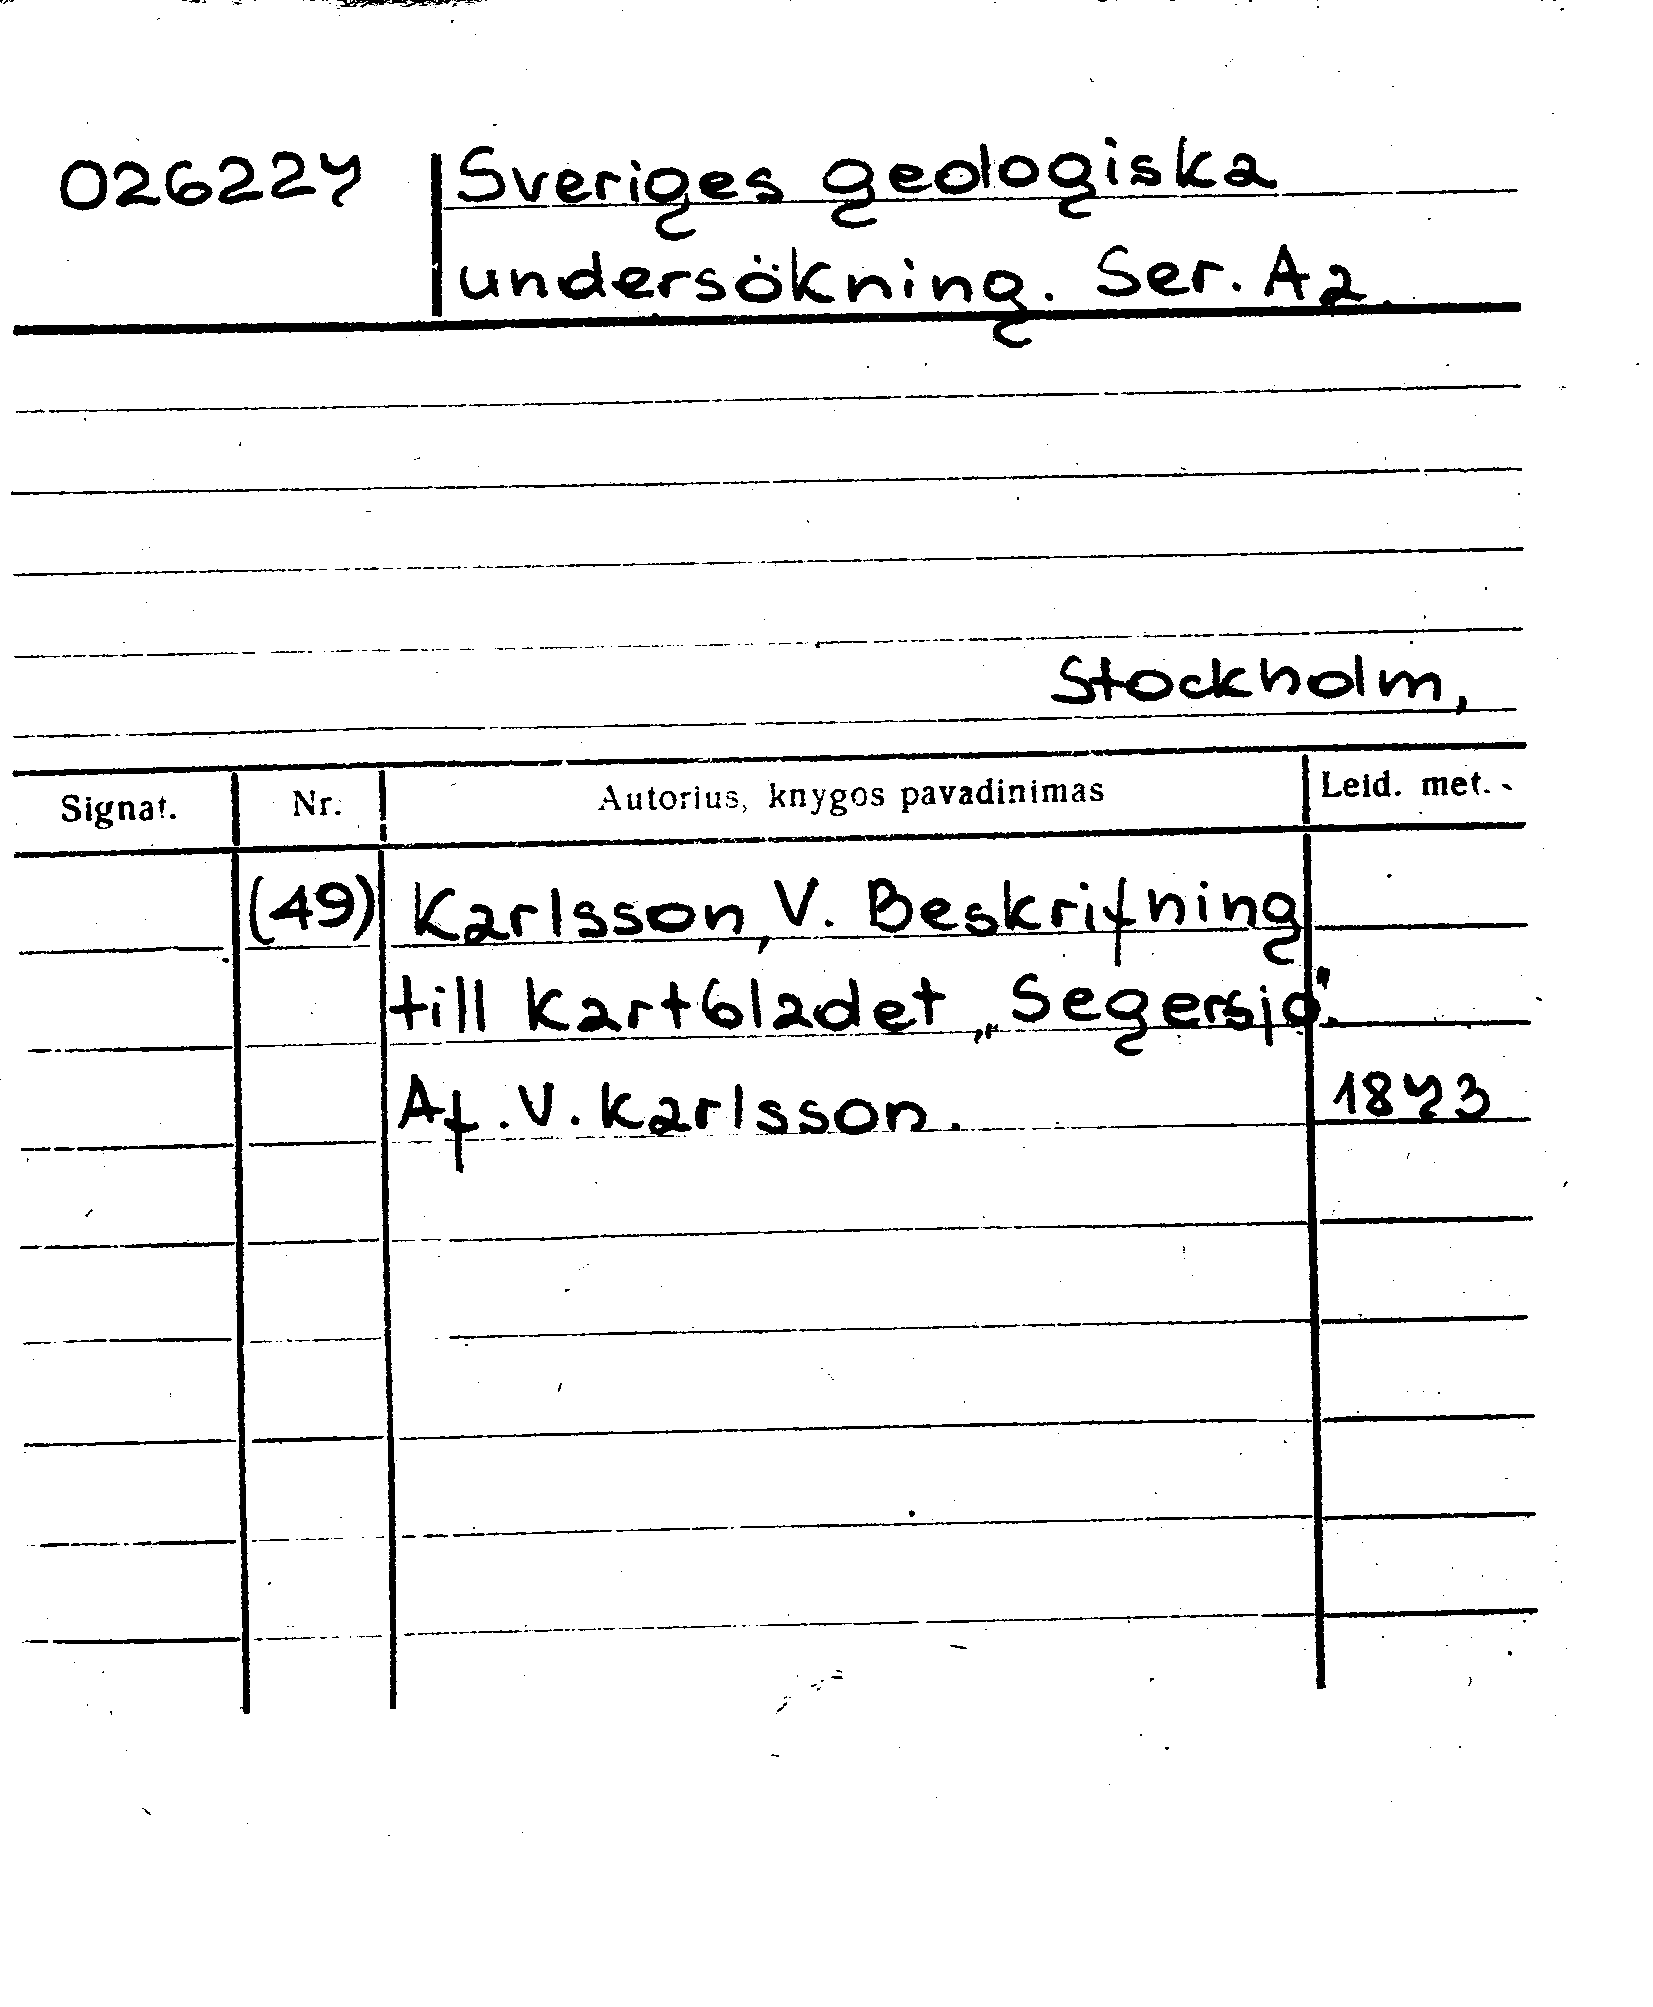 026227 Sveriges geologiska
undersökning. Ser. Aa.
Stockholm,
Signat. Nr. Autorius, knygos pavadinimas Leid. met.
(49) Karlsson, V. Beskrifning
till kartbladet „Segersjö".
Af. V. Karlsson. 1873